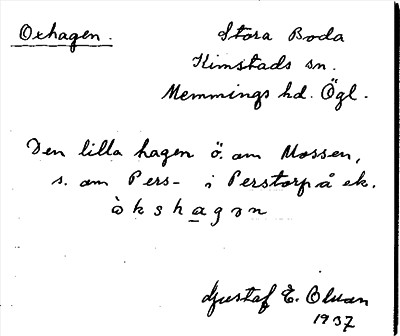 Oxhagen.
Stora Boda
Kimstads sn.
Memmings hd. Ögl.
Den lilla hagen ö. om Mossen,
s. om Pers- i Perstorp å ek.
ò k s h a g ə n
Gustaf E. Olsson
1937